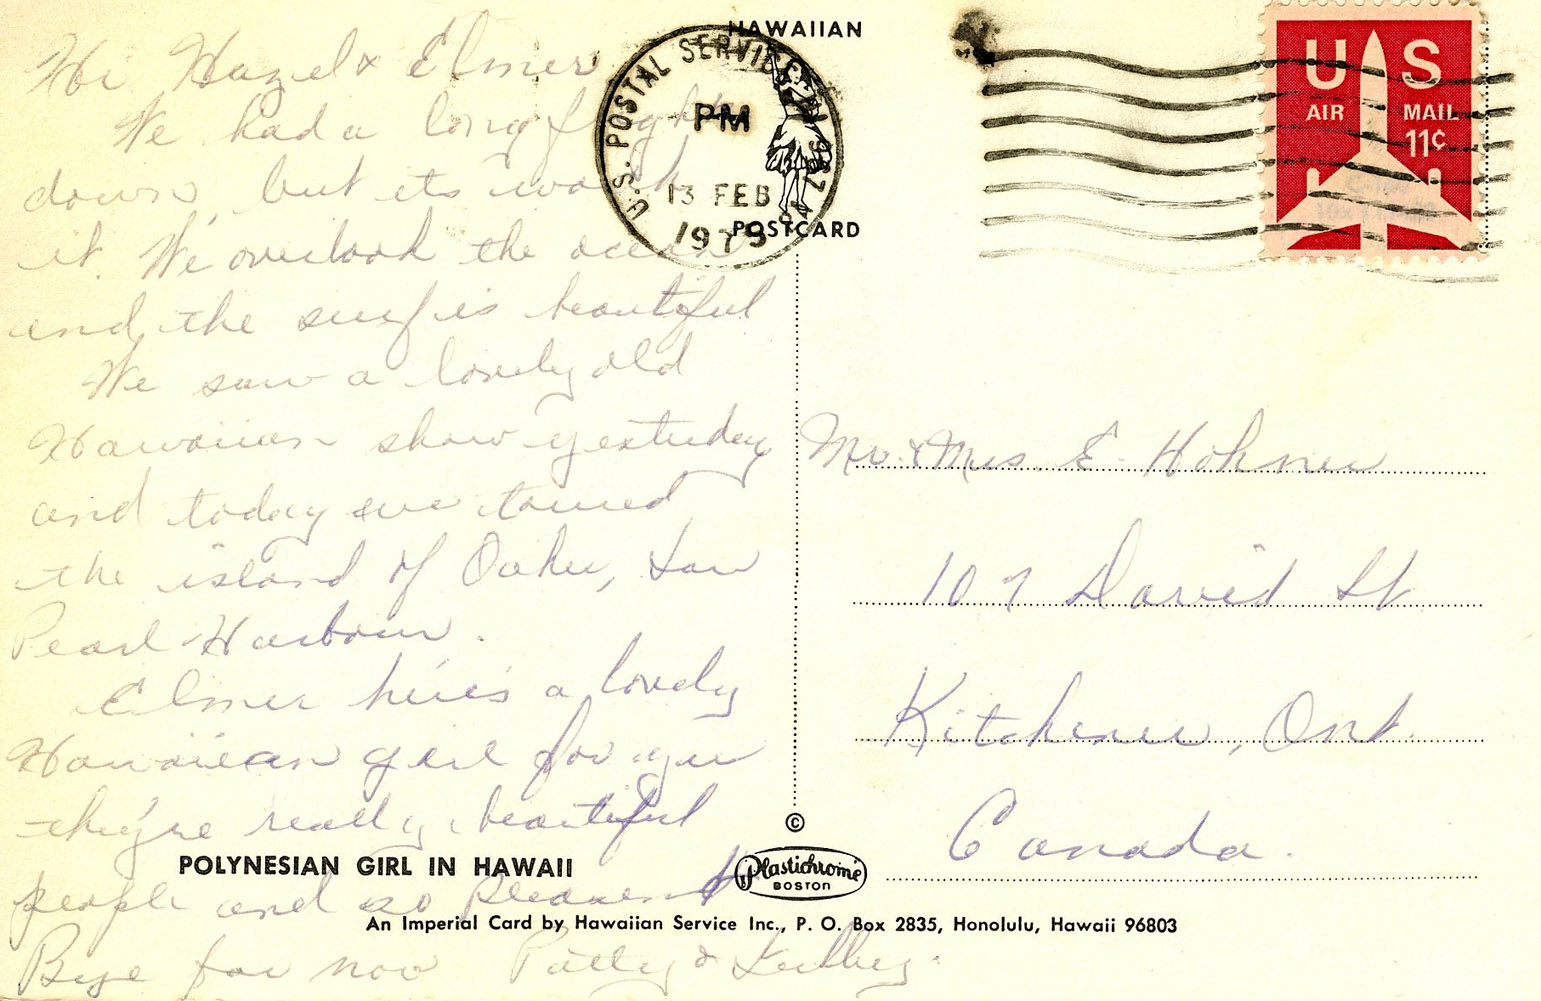 HAWAIIAN
POSTCARD
U.S. POSTAL SERVICE
PM
13 FEB
1973
US
AIR MAIL
11¢
Hi Hazel & Elmer
We had a long flight
down, but its worth
it. We overlook the ocean
and the surf is beautiful
We saw a lovely old
Hawaiian show yesterday
and today we toured
the island of Oahu, saw
Pearl Harbour.
Elmer here's a lovely
Hawaiian girl for you
they're really beautiful
people and so pleasant
Bye for now Patty &
Mr. & Mrs. E. Hohner
107 David St
Kitchener, Ont.
Canada.
©
POLYNESIAN GIRL IN HAWAII
Plastichrome
BOSTON
An Imperial Card by Hawaiian Service Inc., P. O. Box 2835, Honolulu, Hawaii 96803